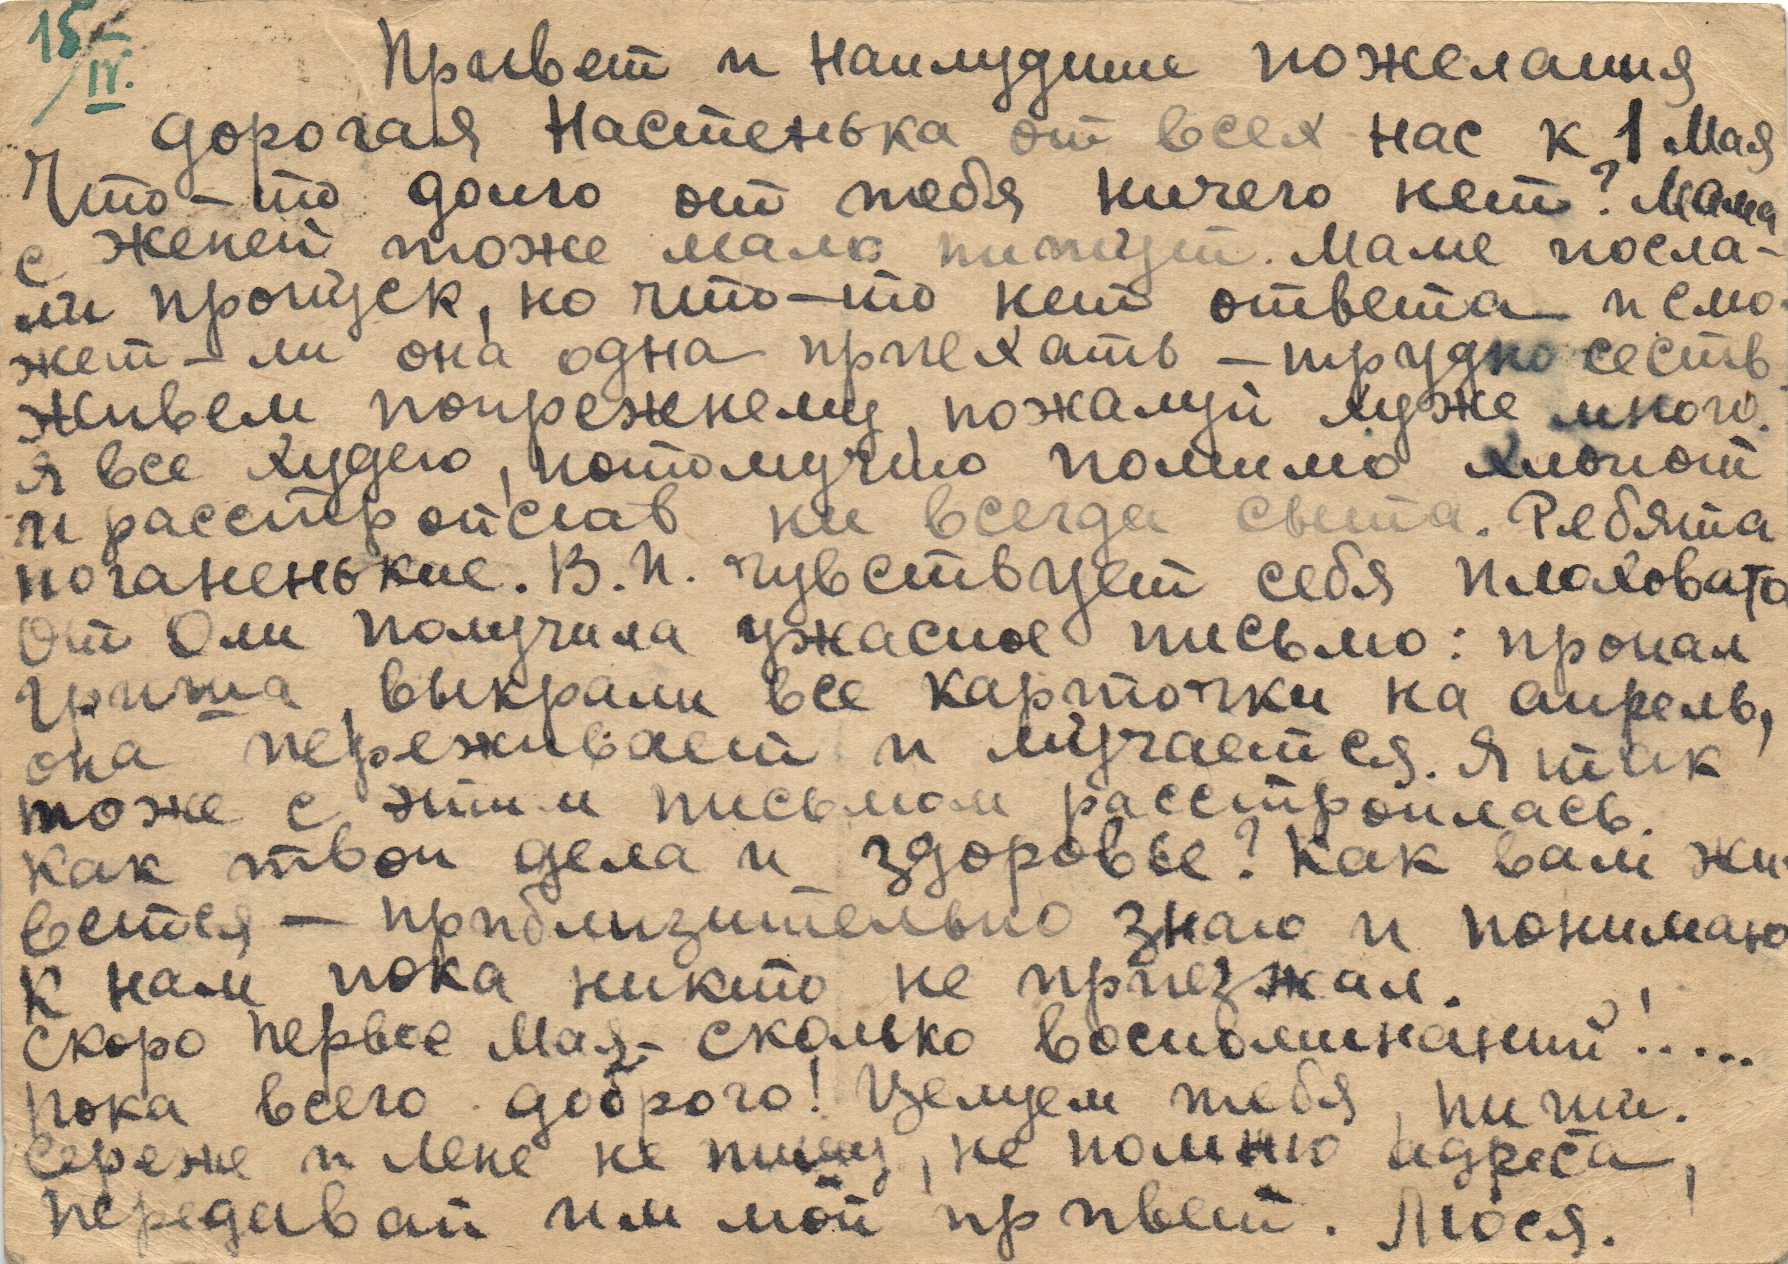 15/IV.
Привет и наилудшие пожелания
дорогая Настенька от всех нас к 1 Мая
Что-то долго от тебя ничего нет? Мама
с Женей тоже мало пишут. Маме посла-
ли пропуск, но что-то нет ответа и смо-
жет-ли она одна приехать - трудно сесть.
Живем попрежнему, пожалуй хуже много.
Я все худею, потомучто помимо хлопот
и расстройств не всегда сыта. Ребята
поганенькие. В.И. чувствует себя плоховато
От Оли получила ужасное письмо: пропал
Гриша, выкрали все карточки на апрель,
она переживает и мучается. Я так
тоже с этим письмом расстроилась.
Как твои дела и здоровье? Как вам жи-
вется - приблизительно знаю и понимаю
К нам пока никто не приезжал.
Скоро первое Мая - сколько воспоминаний!.....
Пока всего доброго! Целуем тебя, пиши.
Сереже и Лене не пишу, не помню адреса,
передавай им мой привет. Люся.